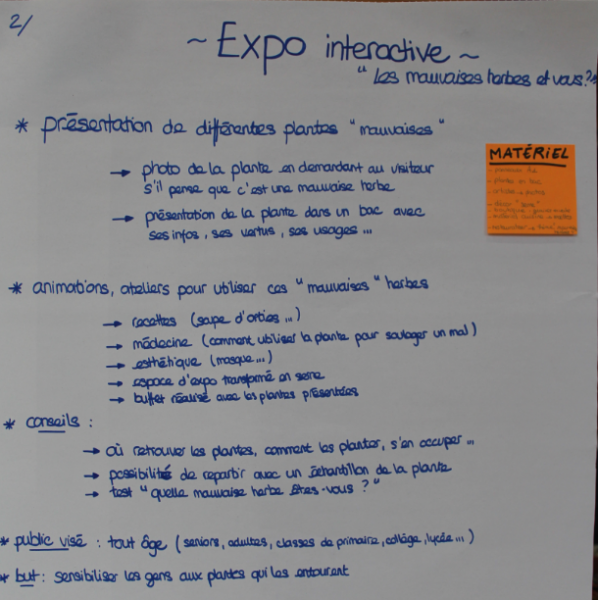 2/
~ Expo interactive ~
" Les mauvaises herbes et vous ? "
* présentation de différentes plantes "mauvaises"
→ photo de la plante en demandant au visiteur
s'il pense que c'est une mauvaise herbe
→ présentation de la plante dans un bac avec
ses infos, ses vertus, ses usages ...
MATÉRIEL
* animations, ateliers pour utiliser ces "mauvaises" herbes
→ recettes (soupe d'orties ...)
→ médecine (comment utiliser la plante pour soulager un mal)
→ esthétique (masque ...)
→ espace d'expo transformé en serre
→ buffet réalisé avec les plantes présentées
* conseils :
→ où retrouver les plantes, comment les planter, s'en occuper ...
→ possibilité de repartir avec un échantillon de la plante
→ test " quelle mauvaise herbe êtes-vous ? "
* public visé : tout âge (seniors, adultes, classes de primaire, collège, lycée ...)
* but : sensibiliser les gens aux plantes qui les entourent